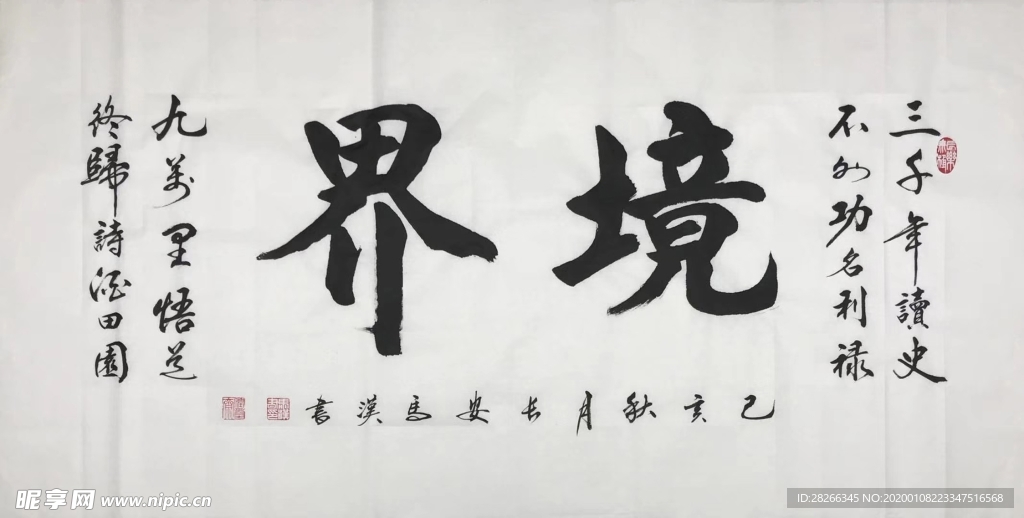 境界
三千年讀史
不外功名利禄
九萬里悟道
終歸詩酒田園
己亥秋月长安馬漢書
昵享网 www.nipic.cn
ID:28266345 NO:20200108223347516568